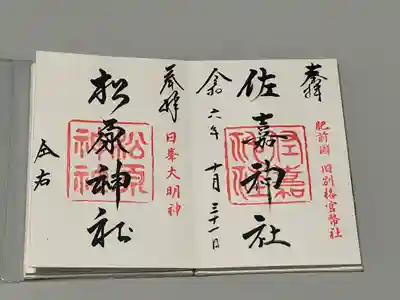 奉拝
肥前國 旧別格官幣社
佐嘉神社
佐嘉神社
令和六年 十月三十一日
奉拝
日峯大明神
松原神社
松原神社
仝右